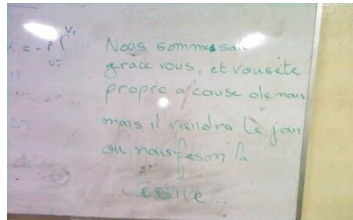 = -P ∫
Nous sommes sale
grace vous, et vous ête
propre a cause de nous
mais il viendra le jour
ou nous feson la